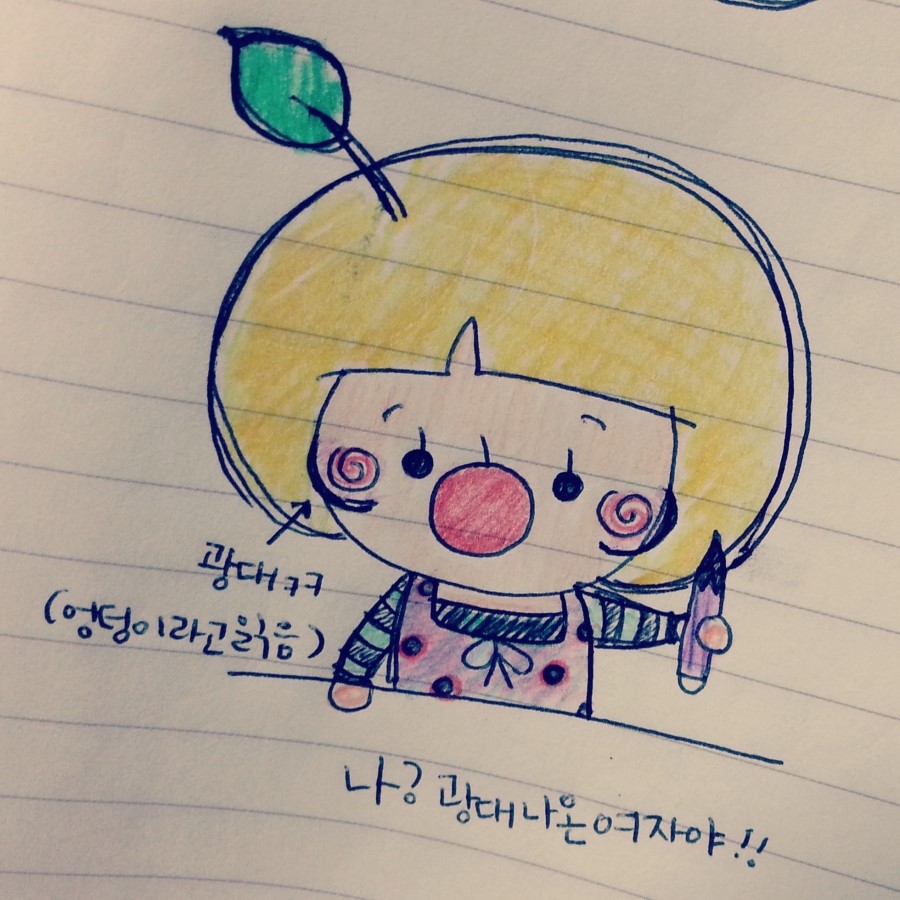 광대ㅋㅋ
(엉덩이라고읽음)
나? 광대나온여자야!!